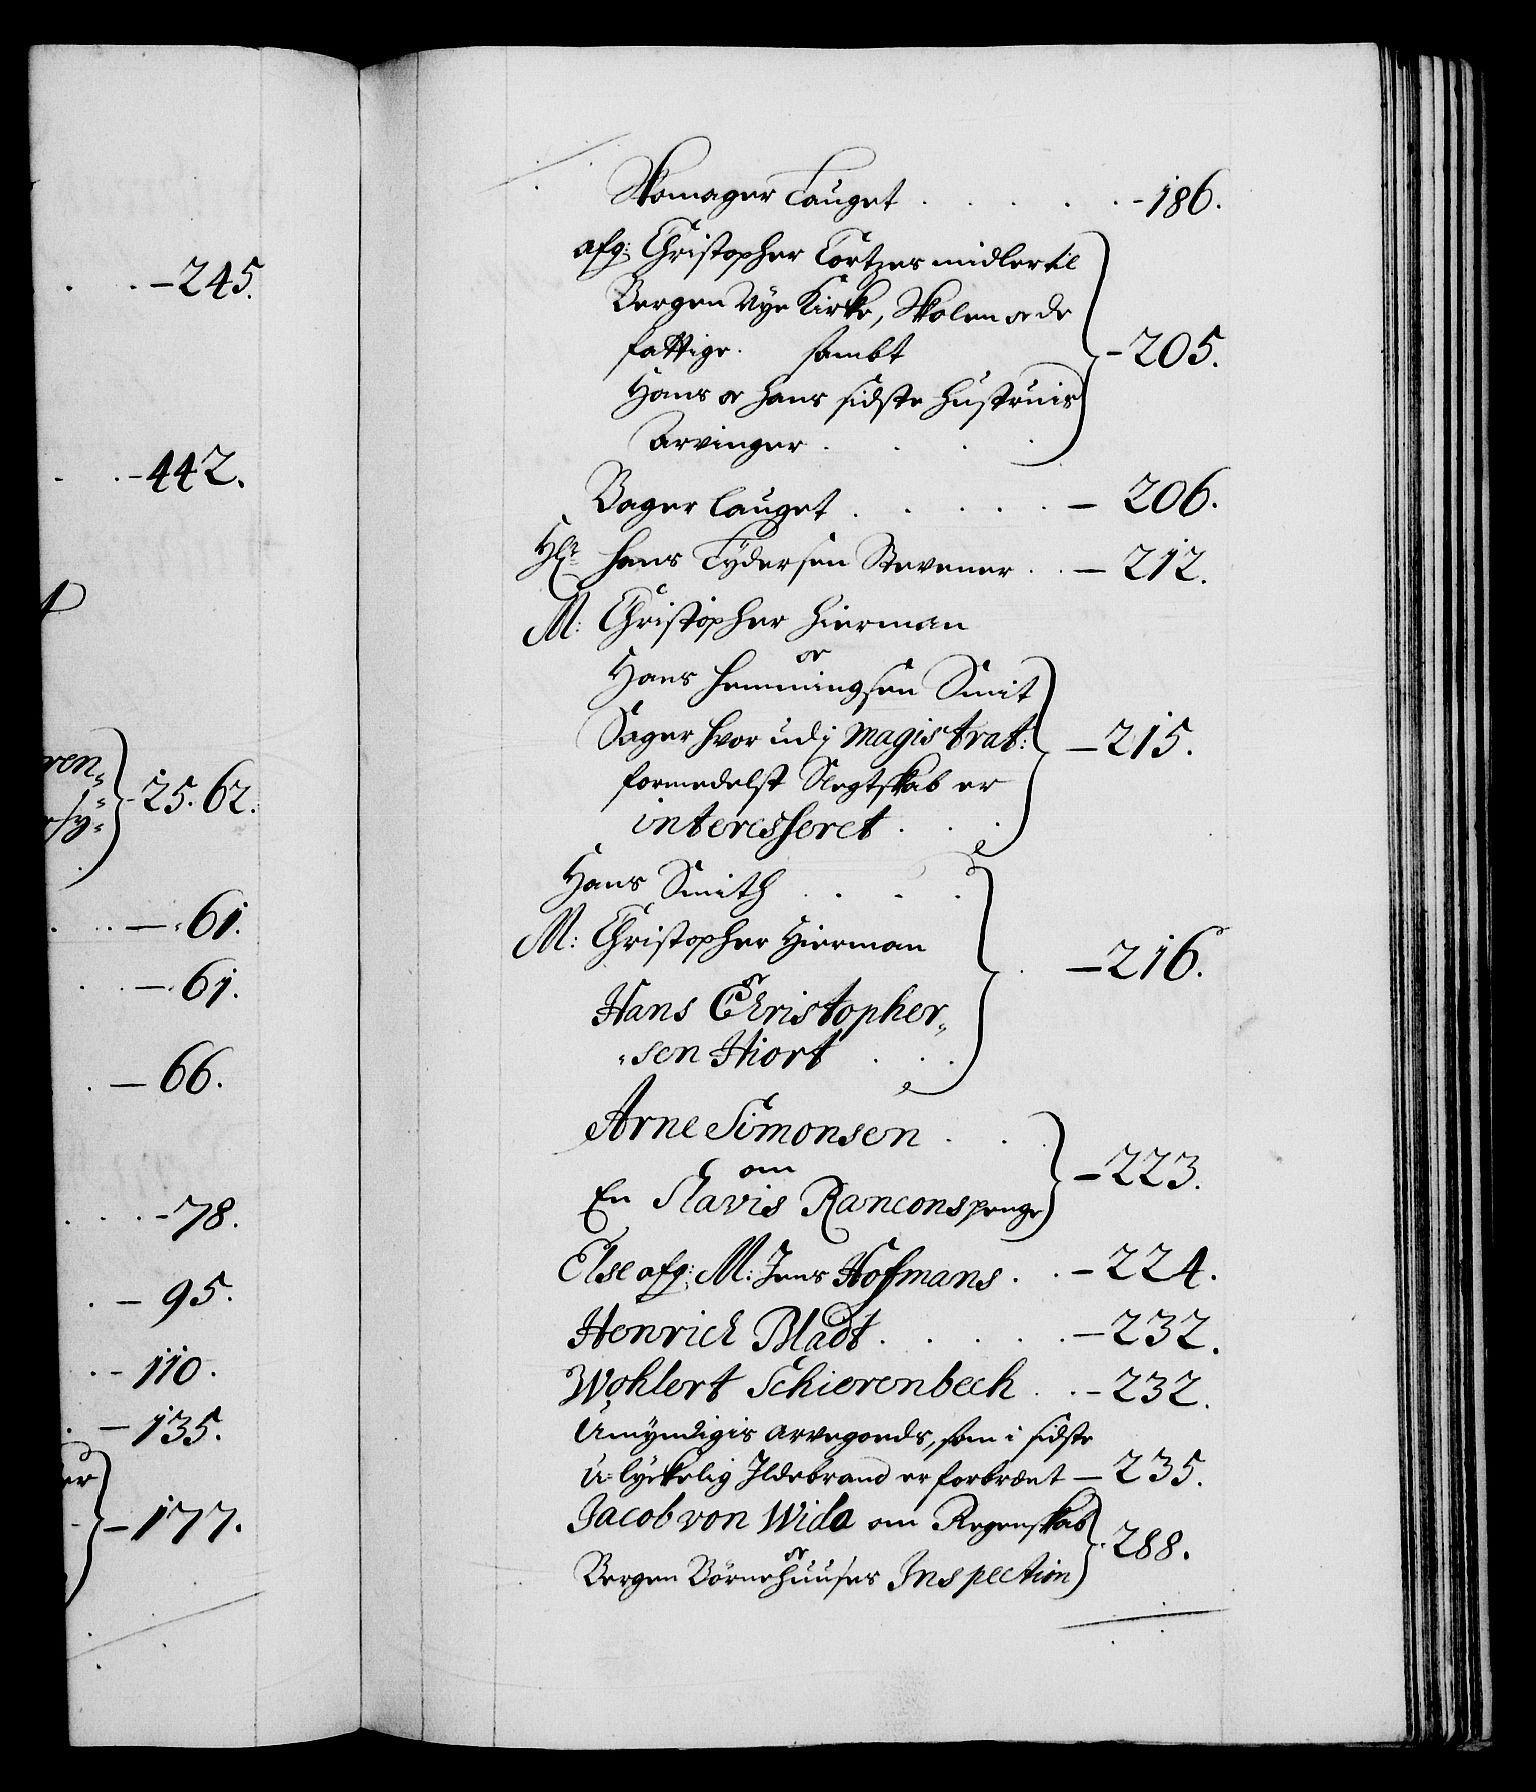 -245.
-442.
ren-
-25.62.
-61.
-61.
-66.
-78.
-95.
-110.
-135.
er
-177.
Skomager Lauget . . . . . -186.
afg: Christopher Tortzes midler til
Bergen Nye Kirke, Skolen oc de
fattige. sambt -205.
Hans oc hans sidste Hustruis
Arvinger . . .
Bager lauget . . . . . - 206.
Hr. Hans Tydersen Stevener . . - 212.
M: Christopher Hierman
oc
Hans Henningsen Smit
Sager hvor udj Magistrat: -215.
formedelst Slegtskab er
interesseret . . .
Hans Smith . . . .
M: Christopher Hierman -216.
oc
Hans Christopher-
-sen Hiort . . .
Arne Simonsen . . .
om -223.
En Slavis Ranconspenge
Else afg: M: Jens Hofmans . . -224.
Henrich Bladt . . . . . -232.
Wohlert Schierenbech . . -232.
Umyndigis Arvegoeds, som i sidste
u-lyckelig Ildebrand er forbrænt - 235.
Jacob von Wida om Regenskab
oc -288.
Bergen Börnehuuses Inspection